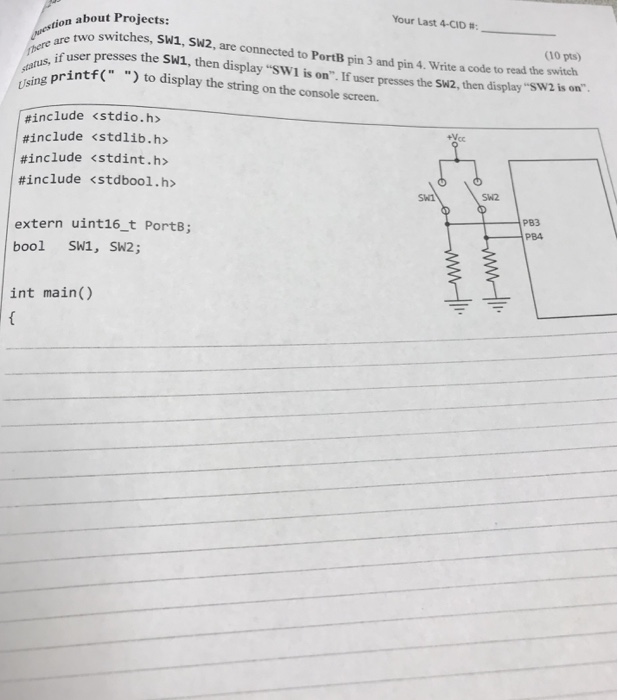 Question about Projects:
Your Last 4-CID #:
(10 pts)
There are two switches, SW1, SW2, are connected to PortB pin 3 and pin 4. Write a code to read the switch
status, if user presses the SW1, then display "SW1 is on". If user presses the SW2, then display "SW2 is on".
Using printf(" ") to display the string on the console screen.
#include <stdio.h>
#include <stdlib.h>
#include <stdint.h>
#include <stdbool.h>
extern uint16_t PortB;
bool SW1, SW2;
int main()
{
+Vcc
SW1
SW2
PB3
PB4